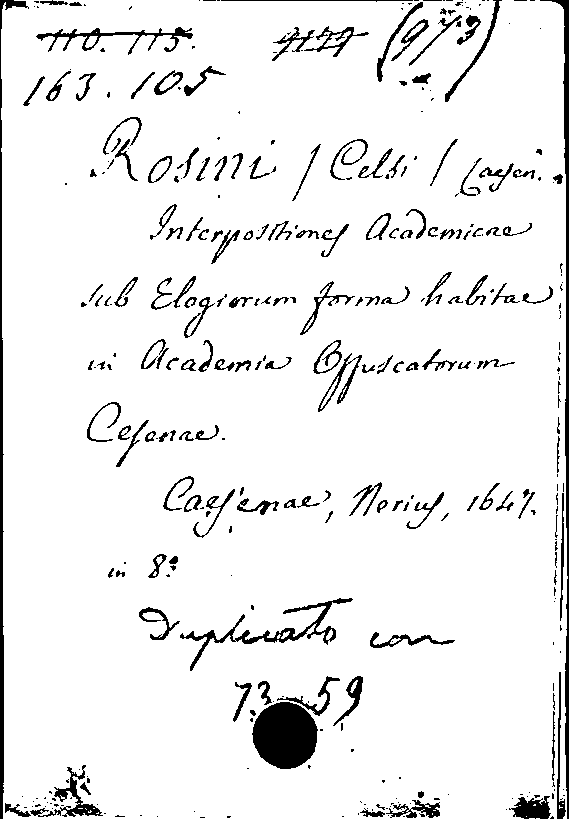 110. 115. 9177 (973)
163. 105
Rosini / Celsi / Caesen.
Interpositiones Academicae
sub Elogiorum forma habitae
in Academia Offuscatorum
Cesenae.
Caesenae, Nerius, 1647.
in 8º
Duplicato con
73. 59